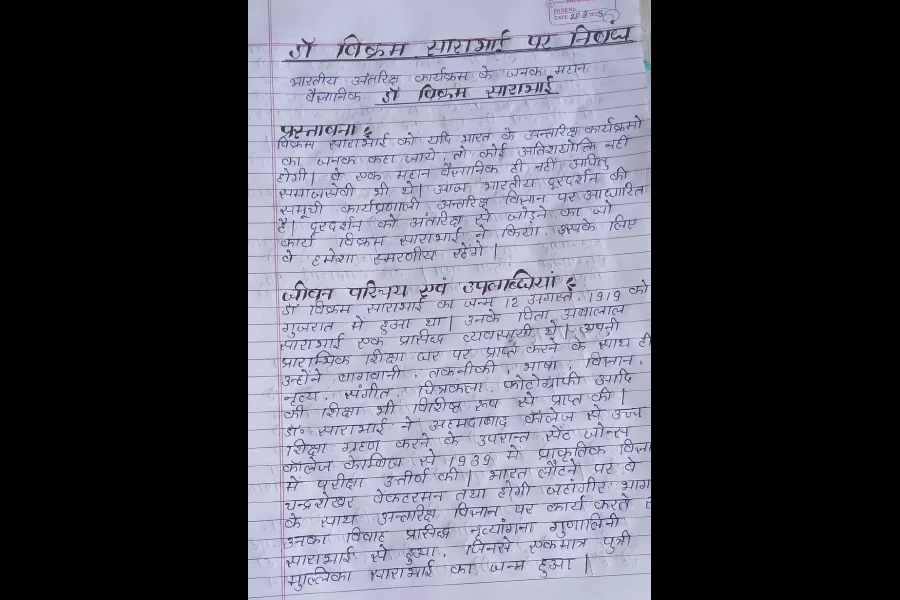 PAGE No.
DATE
डॉ विक्रम साराभाई पर निबंध
भारतीय अंतरिक्ष कार्यक्रम के जनक महान
वैज्ञानिक डॉ विक्रम साराभाई
प्रस्तावना :
विक्रम साराभाई को यदि भारत के अन्तरिक्ष कार्यक्रमो
का जनक कहा जाये, तो कोई अतिशयोक्ति नहीं
होगी। वे एक महान वैज्ञानिक ही नहीं अपितु
समाजसेवी भी थे। आज भारतीय दूरदर्शन की
समूची कार्यप्रणाली अन्तरिक्ष विज्ञान पर आधारित
है। दूरदर्शन को अंतरिक्ष से जोड़ने का जो
कार्य विक्रम साराभाई ने किया, उसके लिए
वे हमेशा स्मरणीय रहेंगे।
जीवन परिचय एवं उपलब्धियां :
डॉ विक्रम साराभाई का जन्म 12 अगस्त, 1919 को
गुजरात में हुआ था। उनके पिता अंबालाल
साराभाई एक प्रसिद्ध व्यवसायी थे। अपनी
प्रारम्भिक शिक्षा घर पर प्राप्त करने के साथ ही
उन्होंने बागवानी, तकनीकी, भाषा, विज्ञान,
नृत्य, संगीत, चित्रकला, फोटोग्राफी आदि
की शिक्षा भी विशिष्ट रूप से प्राप्त की।
डॉ॰ साराभाई ने अहमदाबाद कॉलेज से उच्च
शिक्षा ग्रहण करने के उपरान्त सेंट जोन्स
कॉलेज केम्ब्रिज से 1939 में प्राकृतिक विज्ञा
में परीक्षा उत्तीर्ण की। भारत लौटने पर वे
चन्द्रशेखर वेंकटरमन तथा होगी जहांगीर भाभा
के साथ अन्तरिक्ष विज्ञान पर कार्य करते र
उनका विवाह प्रसिद्ध नृत्यांगना मृणालिनी
साराभाई से हुआ, जिनसे एकमात्र पुत्री
मल्लिका साराभाई का जन्म हुआ।